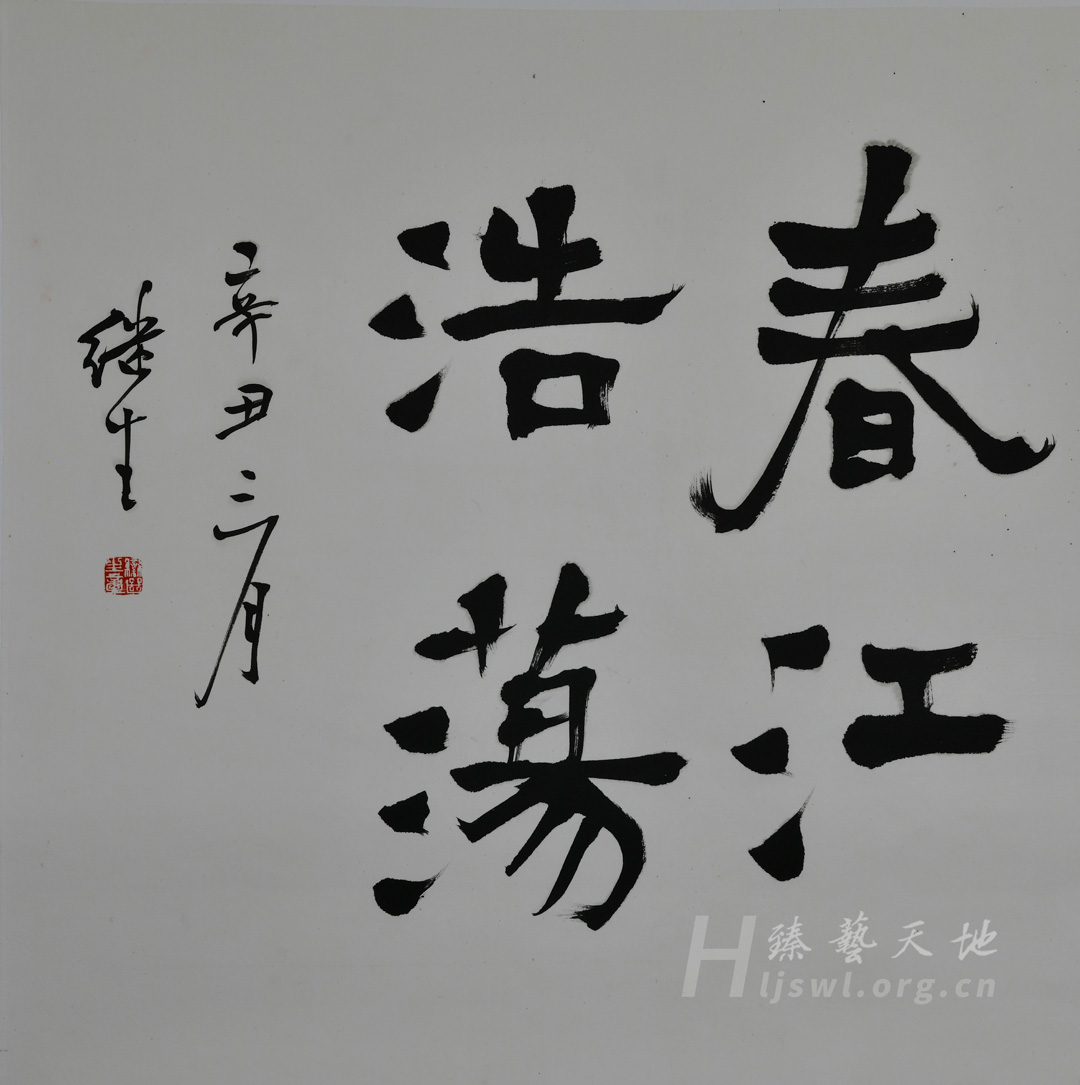 春江
浩蕩
辛丑三月
继生
臻藝天地
Hljswl.org.cn